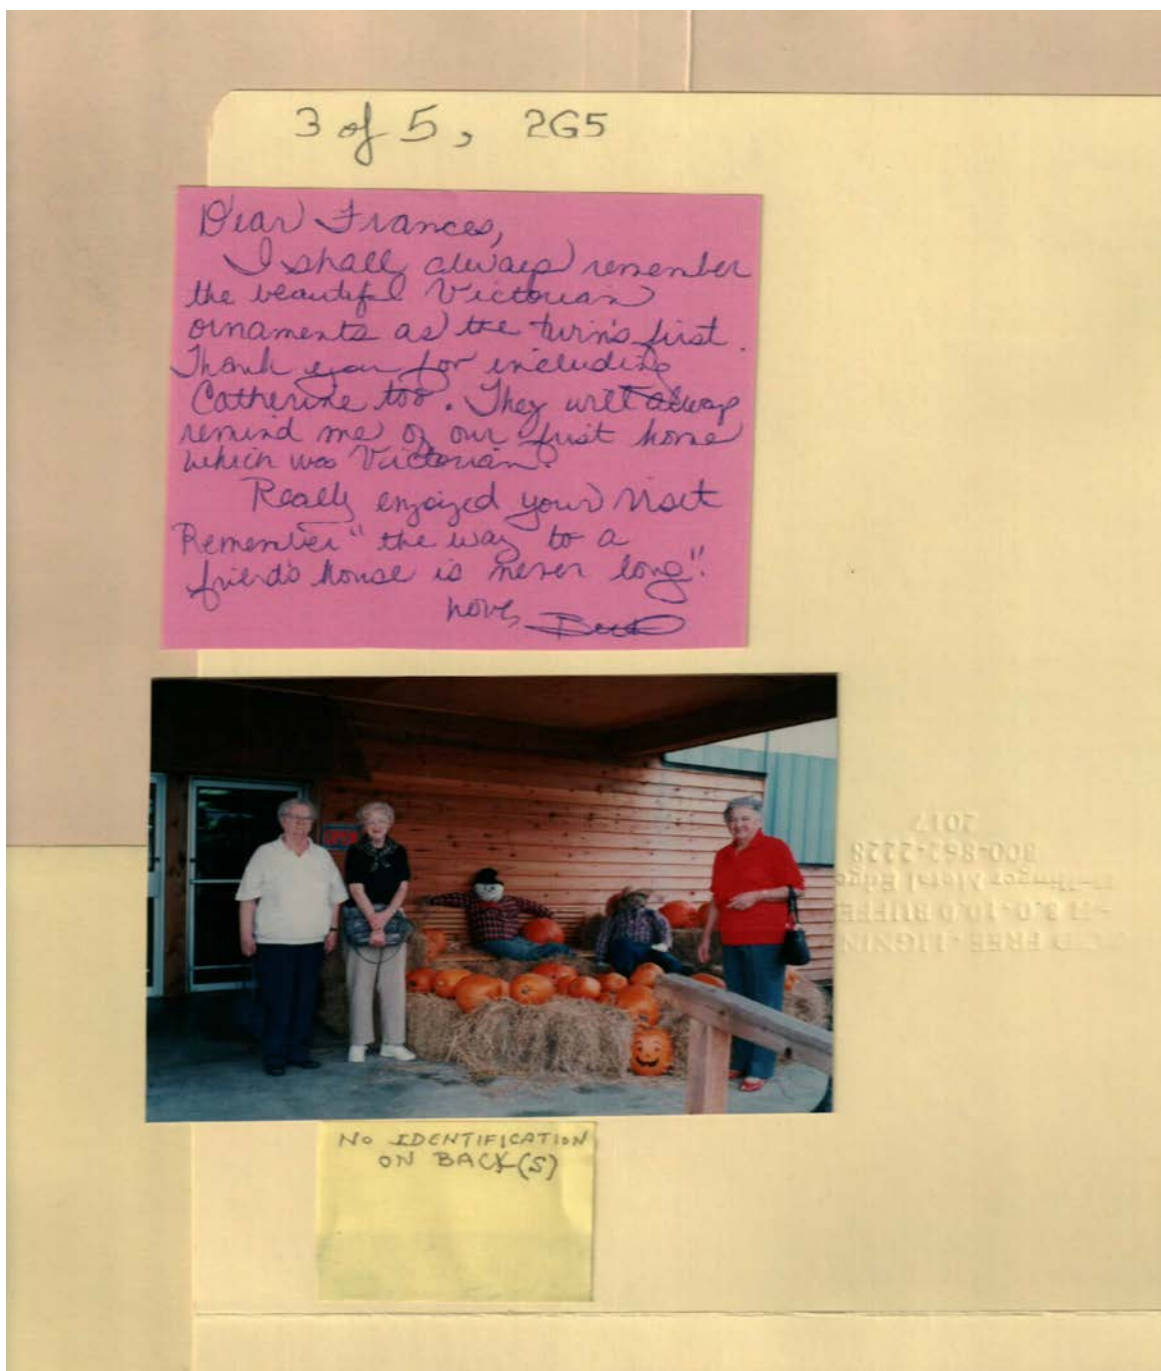 3 of 5, 2G5
Dear Frances,
I shall always remember
the beautiful Victorian
ornaments as the twins first.
Thank you for including
Catherine too. They will always
remind me of our first home
which was Victorian.
Really enjoyed your visit
Remember "the way to a
friend's house is never long".
Love,
OPEN
2017
800-862-2228
Hollinger Metal Edge
8.0-10.0 BUFFE
FREE-LIGNIN
NO IDENTIFICATION
ON BACK(S)